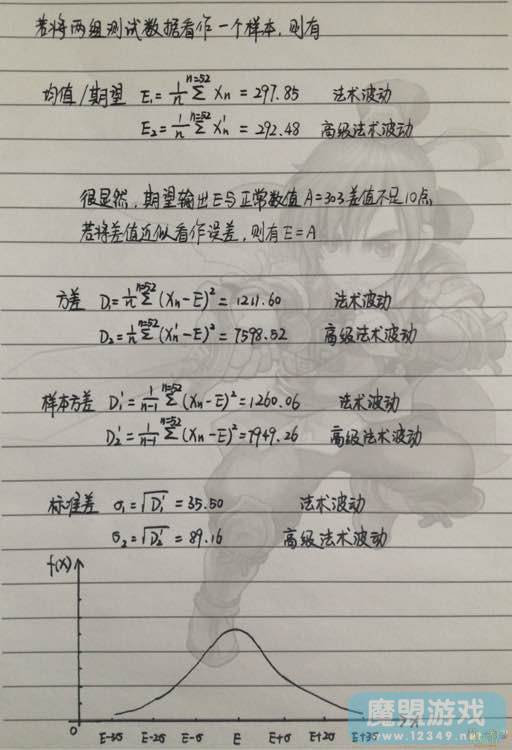 若将两组测试数据看作一个样本,则有
均值/期望 E₁=1/n Σⁿ⁼⁵² Xn = 297.85 法术波动
E₂=1/n Σⁿ⁼⁵² X'n = 292.48 高级法术波动
很显然,期望输出E与正常数值A=303差值不足10点
若将差值近似看作误差,则有E=A
方差 D₁=1/n Σⁿ⁼⁵² (Xn-E)² = 1211.60 法术波动
D₂=1/n Σⁿ⁼⁵² (X'n-E)² = 7598.52 高级法术波动
样本方差 D₁'=1/(n-1) Σⁿ⁼⁵² (Xn-E)² = 1260.06 法术波动
D₂'=1/(n-1) Σⁿ⁼⁵² (Xn-E)² = 7949.26 高级法术波动
标准差 σ₁=√D₁' = 35.50 法术波动
σ₂=√D₂' = 89.16 高级法术波动
f(x)
0 E-3σ E-2σ E-σ E E+σ E+2σ E+3σ
魔盟游戏
www.12349.net